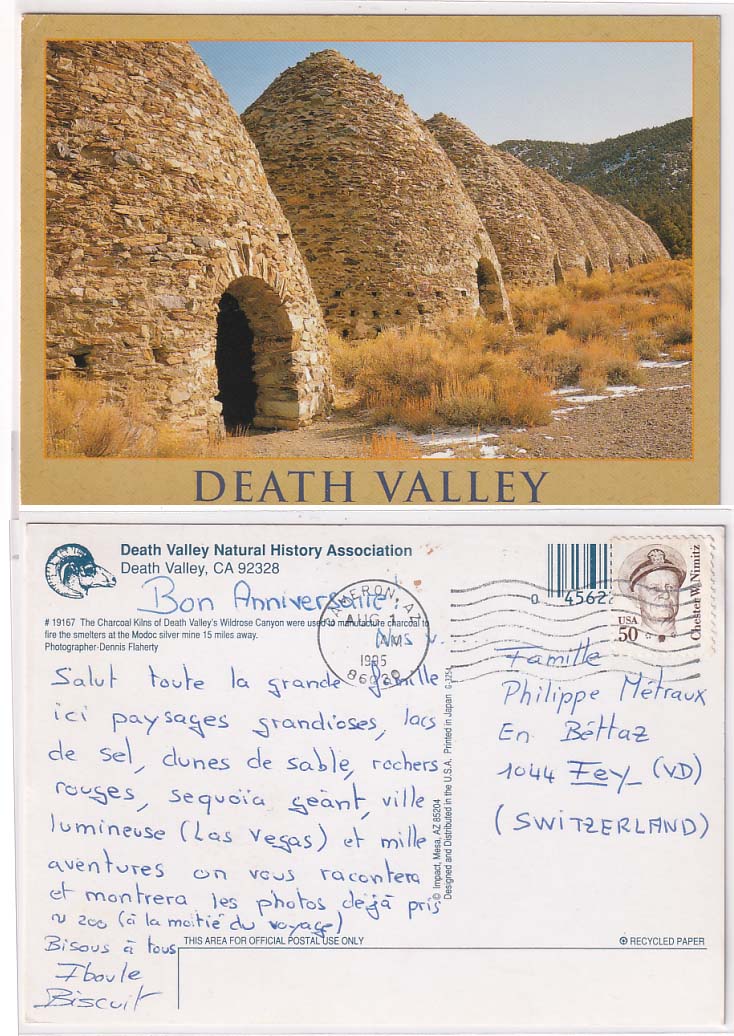 DEATH VALLEY
Death Valley Natural History Association
Death Valley, CA 92328
Bon Anniversaire!
# 19167 The Charcoal Kilns of Death Valley's Wildrose Canyon were used to manufacture charcoal to
fire the smelters at the Modoc silver mine 15 miles away.
Photographer-Dennis Flaherty
CAMERON, AZ
AUG
AM
1995
86020
0 4562
USA
50
Chester W. Nimitz
Salut toute la grande famille
ici paysages grandioses, lacs
de sel, dunes de sable, rochers
rouges, sequoïa géant, ville
lumineuse (Las Vegas) et mille
aventures on vous racontera
et montrera les photos déjà pris
~ 200 (à la moitié du voyage)
Bisous à tous
Iboule
Biscuit
© Impact, Mesa, AZ 85204
Designed and Distributed in the U.S.A. Printed in Japan G-3254
Famille
Philippe Métraux
En Béttaz
1044 Fey (VD)
(SWITZERLAND)
THIS AREA FOR OFFICIAL POSTAL USE ONLY
RECYCLED PAPER